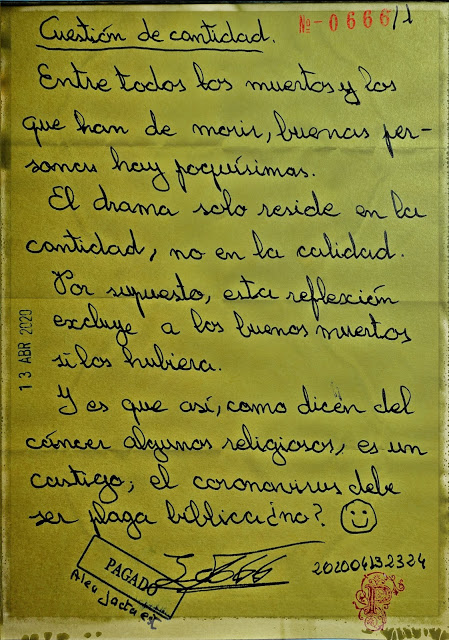 Nº-0666/1
Cuestión de cantidad.
Entre todos los muertos y los
que han de morir, buenas per-
sonas hay poquísimas.
El drama solo reside en la
cantidad, no en la calidad.
Por supuesto, esta reflexión
excluye a los buenos muertos
si los hubiera.
Y es que así, como dicen del
cáncer algunos religiosos, es un
castigo; el coronavirus debe
ser plaga bíblica ¿no?
13 ABR 2020
PAGADO
Alea jacta est
202004132324
P